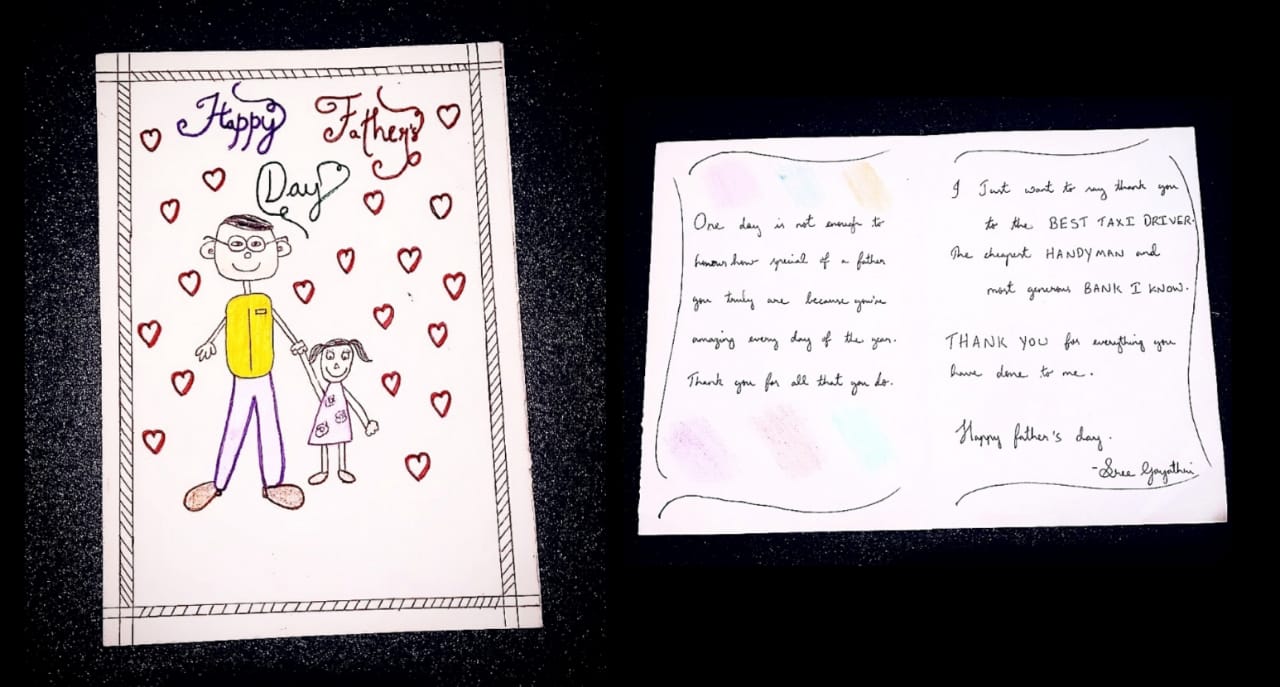 Happy Father's
Day
One day is not enough to
honour how special of a father
you truly are because you're
amazing every day of the year.
Thank you for all that you do.
I Just want to say thank you
to the BEST TAXI DRIVER.
The cheapest HANDYMAN and
most generous BANK I KNOW.
THANK YOU for everything you
have done to me.
Happy father's day.
-Sree Gayathri